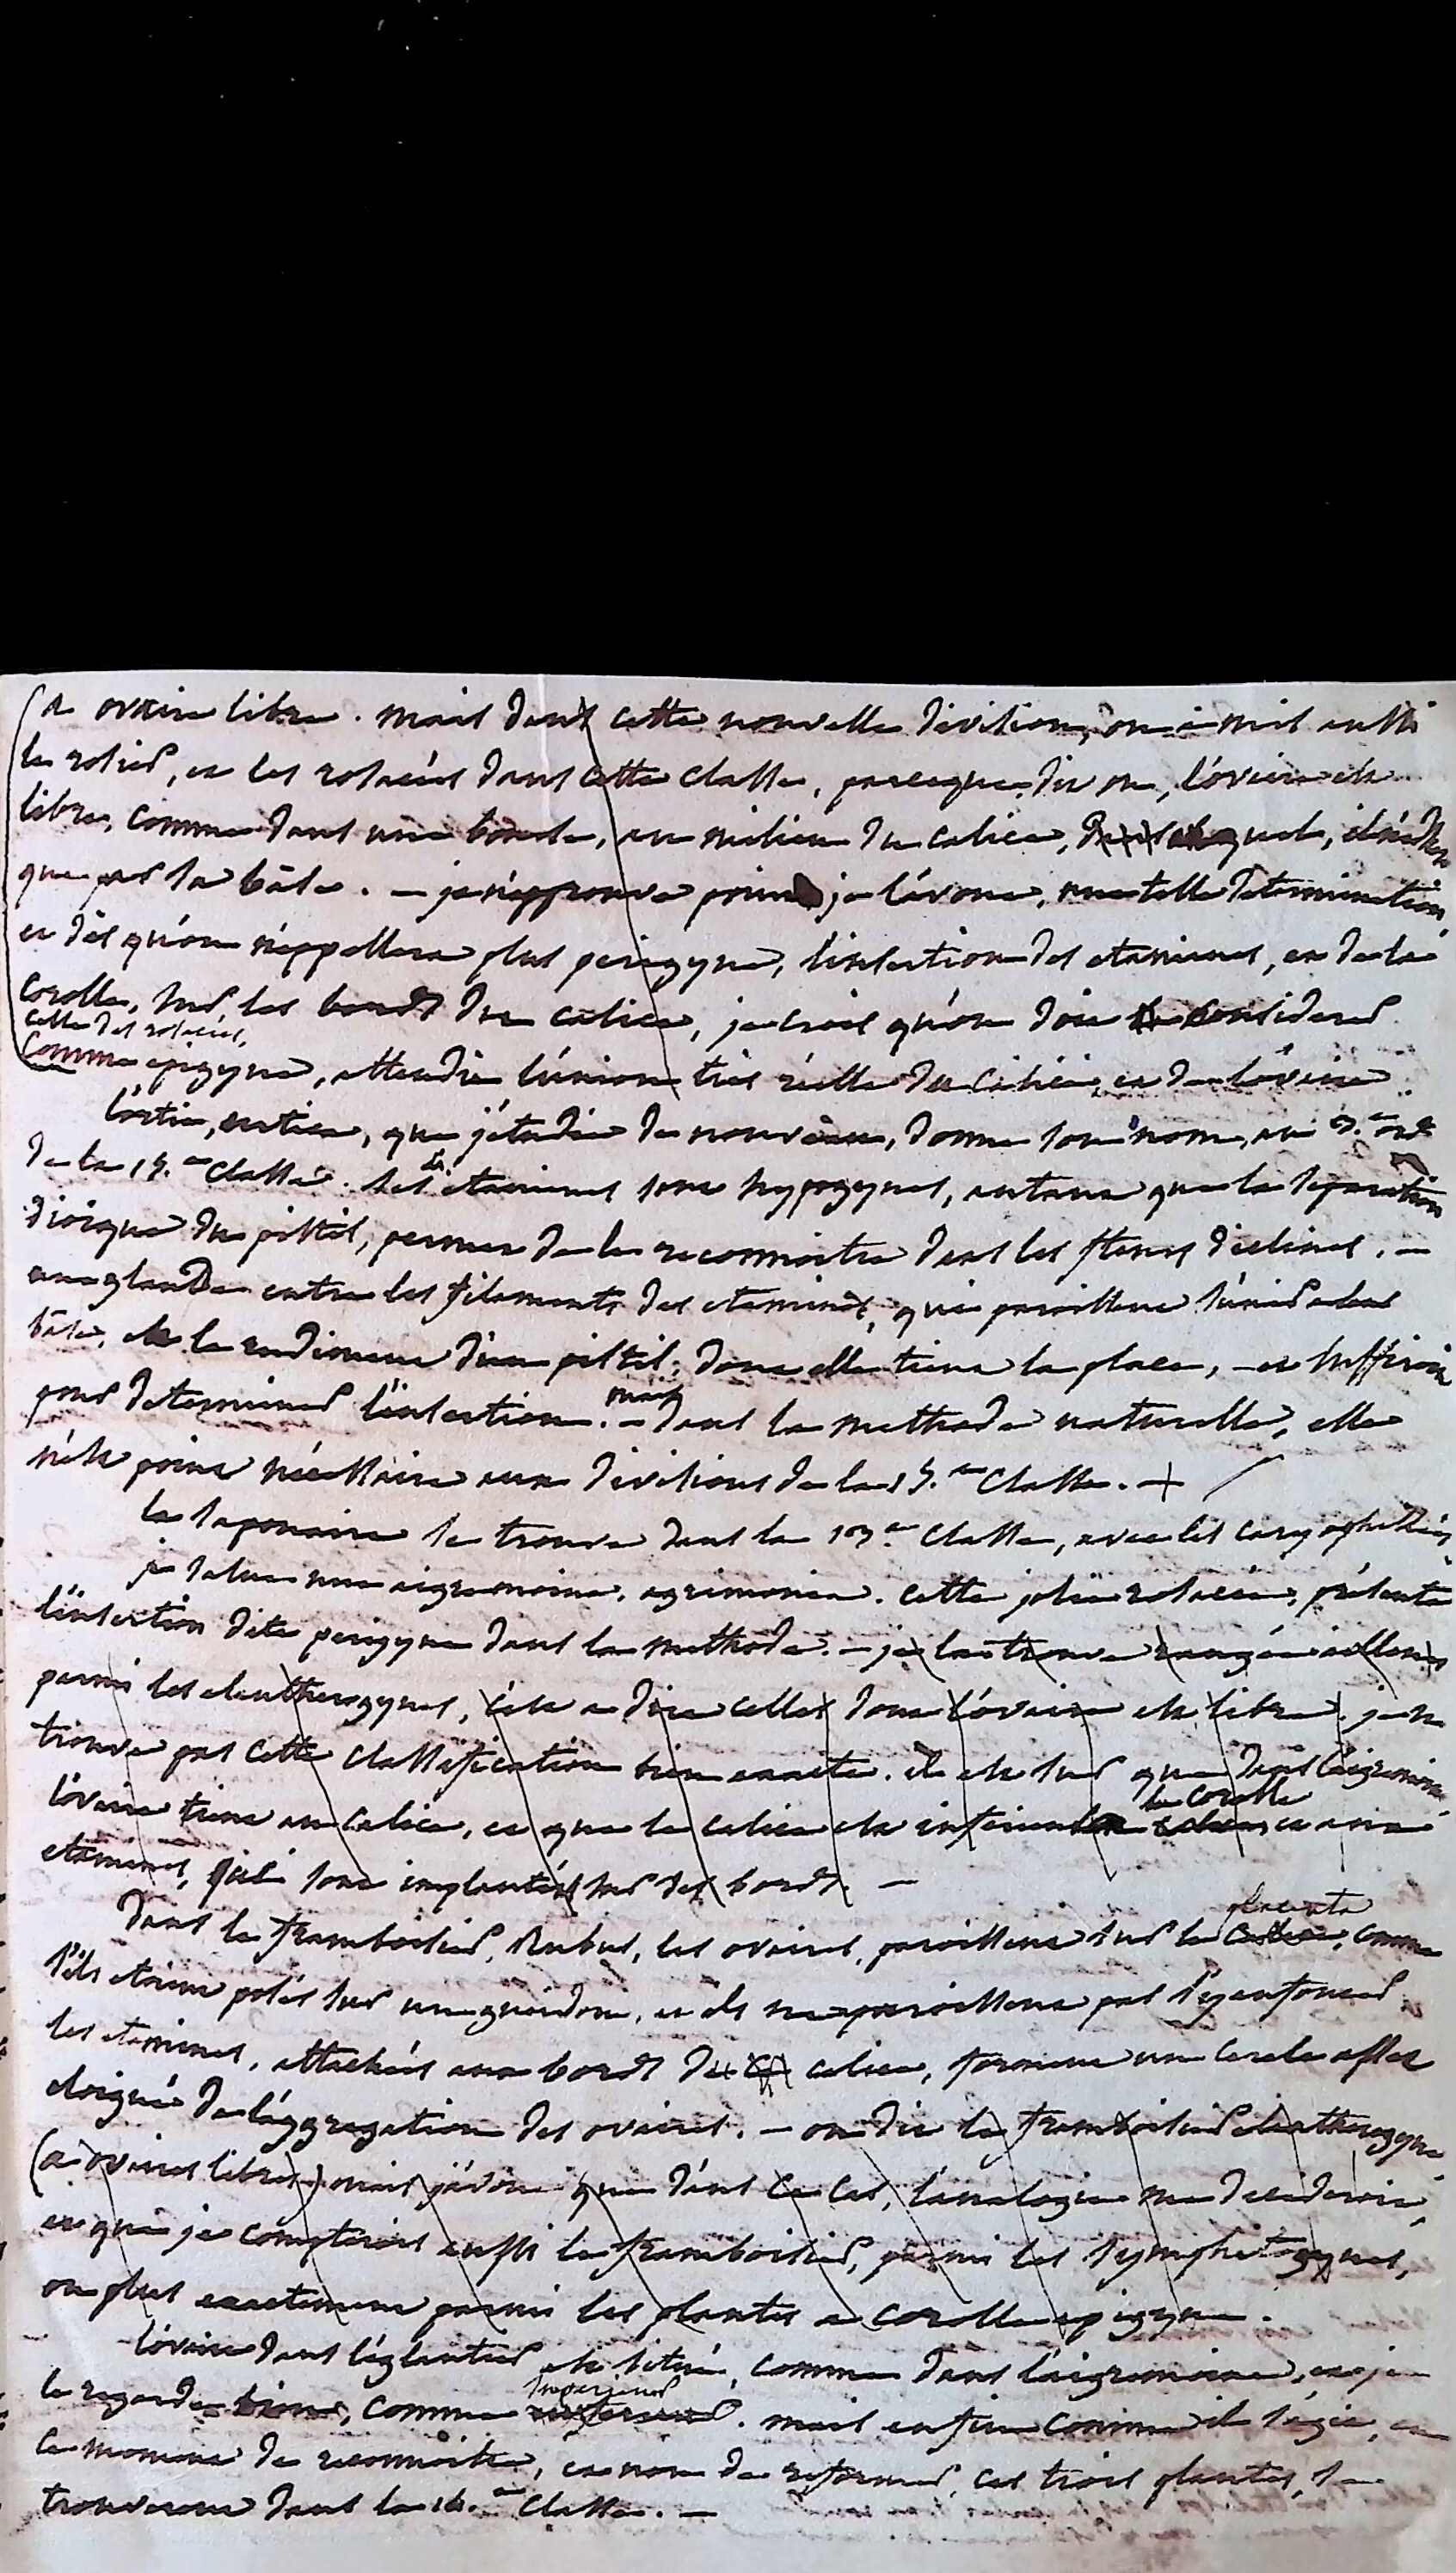 a ovaire libre. mais dans cette nouvelle division, on a mis aussi
le rosier, et les rosacées dans cette classe, parceque, dit on, l'ovaire est
libre, comme dans une bourse, au milieu du calice, auquel, il n'adhere
que par sa bâse. — je n'approuve point je l'avoue, une telle determination,
et dès qu'on n'appellera plus perigyne, l'insertion des etamines, et de la
corolle, sur les bords du calice, je crois qu'on doit considerer
celle des rosacées,
comme epigyne, attendu l'union très réelle du calice, et de l'ovaire
l'ortie, urtica, que j'étudie de nouveau, donne son nom, au 3.e ordre
de la 15.e classe. ses 4 etamines sont hypogynes, autant que la separation
dioique du pistil, permet de le reconnoitre dans les fleurs diclines. —
une glande entre les filaments des etamines, qui paroissent s'unir a leur
bâse, est le rudiment d'un pistil, dont elle tient la place, — et suffiroit
pour determiner l'insertion. — mais dans la methode naturelle, elle
n'est point nécessaire aux divisions de la 15.e classe. +
la saponaire se trouve dans la 13.e classe, avec les caryophyllées,
je salue une aigremoine, agrimonia. cette jolie rosacée, présente
l'insertion dite perigyne dans la methode. — je la trouve rangée ailleurs
parmi les eleutherogynes, c'est a dire celles dont l'ovaire est libre. je ne
trouve pas cette classification bien exacte. il est sur que dans l'aigremoine,
l'ovaire tient au calice, et que le calice est inferieur a la corolle et aux
etamines, qui sont implantées sur ses bords. —
Dans le framboisier, Rubus, les ovaires, paroissent sur le placenta, comme
s'ils etoient posés sur un gueridon, et ils ne paroissent pas s'y enfoncer.
les etamines, attachées aux bords du calice, forment un cercle assez
eloigné de l'aggregation des ovaires. — on dit le framboisier eleutherogyne,
(a ovaires libres) mais j'avoue que dans ce cas, l'analogie me decideroit,
et que je compterois aussi le framboisier, parmi les symphetogynes,
ou plus exactement parmi les plantes a corolle epigyne.
l'ovaire dans l'eglantier est situé, comme dans l'aigremoine, et je
le regarde, comme superieur. mais enfin comme il s'agit, en
ce moment de reconnoitre, et non de reformer, ces trois plantes, se
trouveront dans la 14.e classe. —